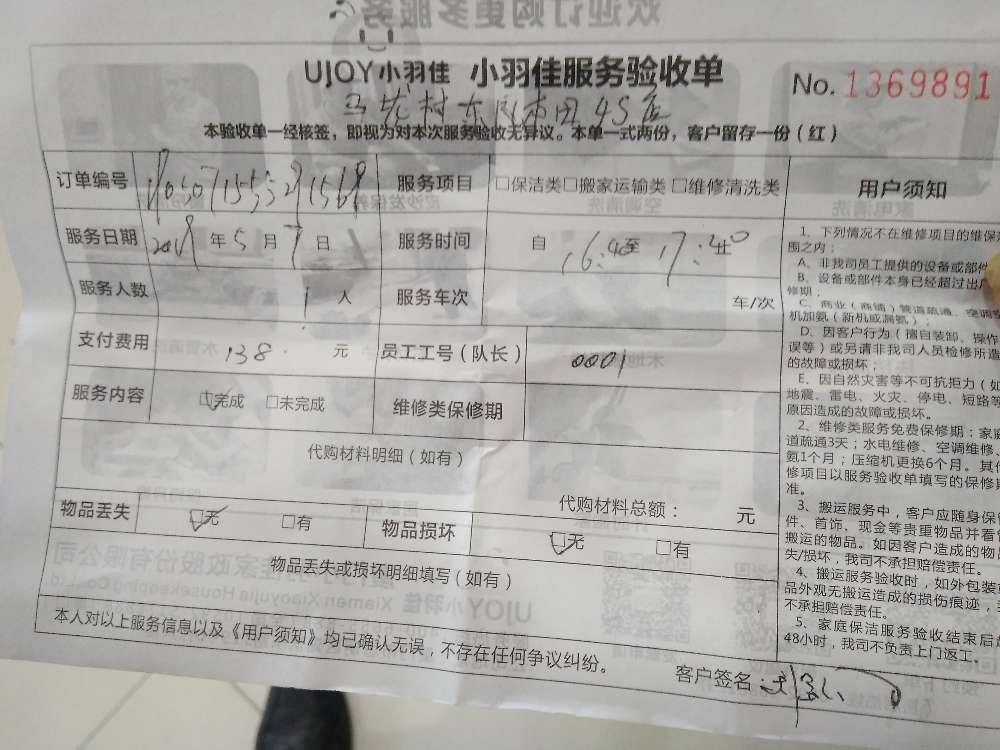 UJOY小羽佳 小羽佳服务验收单
No. 1369891
马垅村东风本田4S店
本验收单一经核签，即视为对本次服务验收无异议。本单一式两份，客户留存一份（红）
订单编号
服务项目 □保洁类□搬家运输类□维修清洗类
服务日期 2019年5月7日
服务时间 自 16:40至 17:40
服务人数 1人
服务车次 车/次
支付费用 138. 元
员工工号（队长） 0001
服务内容 ☑完成 □未完成
维修类保修期
代购材料明细（如有）
代购材料总额： 元
物品丢失 ☑无 □有
物品损坏 ☑无 □有
物品丢失或损坏明细填写（如有）
本人对以上服务信息以及《用户须知》均已确认无误，不存在任何争议纠纷。
客户签名：
用户须知
1、下列情况不在维修项目的维保范
围之内；
A、非我司员工提供的设备或部件
B、设备或部件本身已经超过出厂
修期；
C、商业（商铺）管道疏通、空调空
机加氨（新机或漏氨）；
D、因客户行为（擅自装卸、操作
误等）或另请非我司人员检修所造
的故障或损坏；
E、因自然灾害等不可抗拒力（如
地震、雷电、火灾、停电、短路等
原因造成的故障或损坏。
2、维修类服务免费保修期：家庭
道疏通3天；水电维修、空调维修、
氨1个月；压缩机更换6个月。其他
修项目以服务验收单填写的保修期
准。
3、搬运服务中，客户应随身保管
件、首饰、现金等贵重物品并看管
搬运的物品。如因客户造成的物品
失/损坏，我司不承担赔偿责任。
4、搬运服务验收时，如外包装
品外观无搬运造成的损伤痕迹，
不承担赔偿责任。
5、家庭保洁服务验收结束后
48小时，我司不负责上门返工。